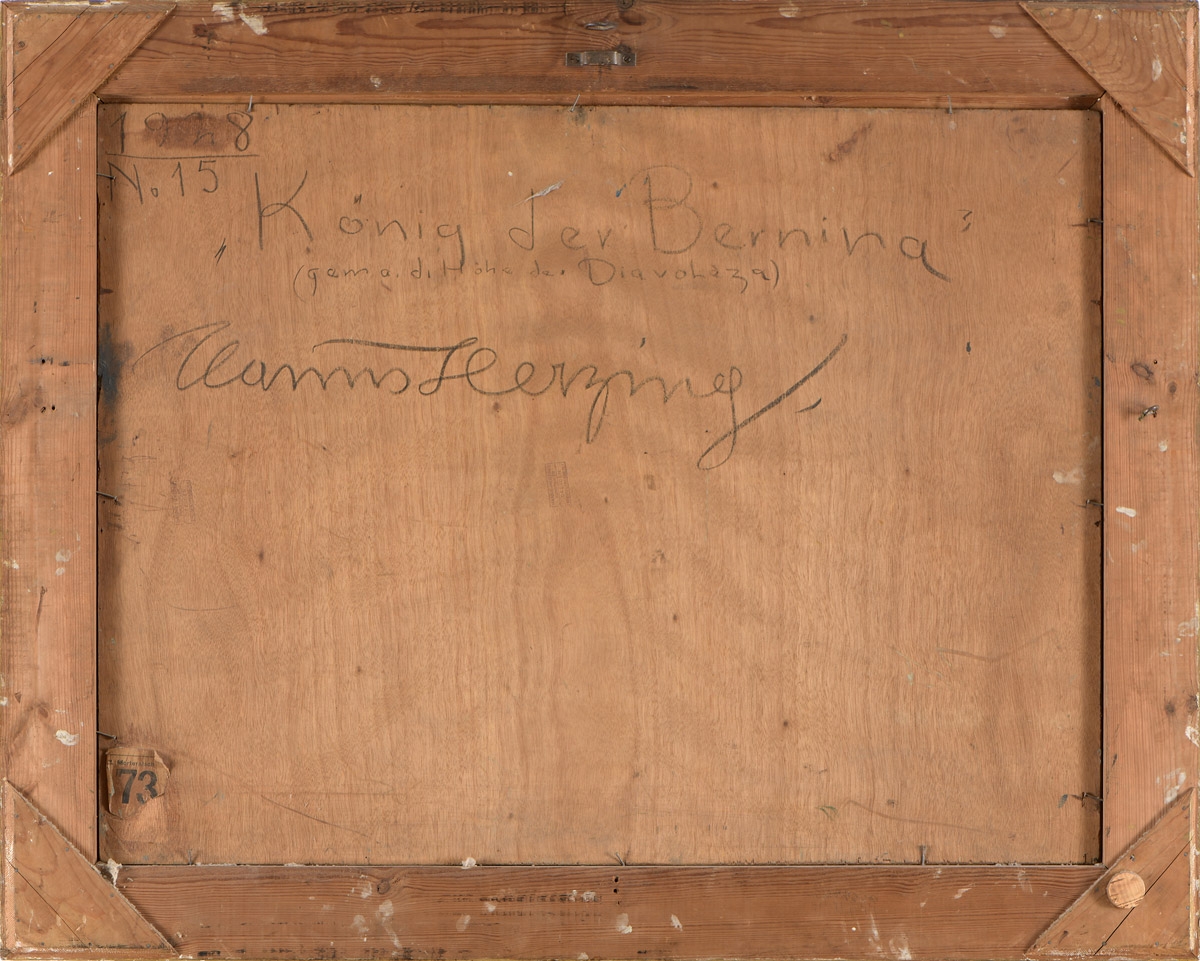 1928
No. 15
„König der Bernina"
(gem. a. d. Höhe der Diavolezza)
Hanns Herzing
73